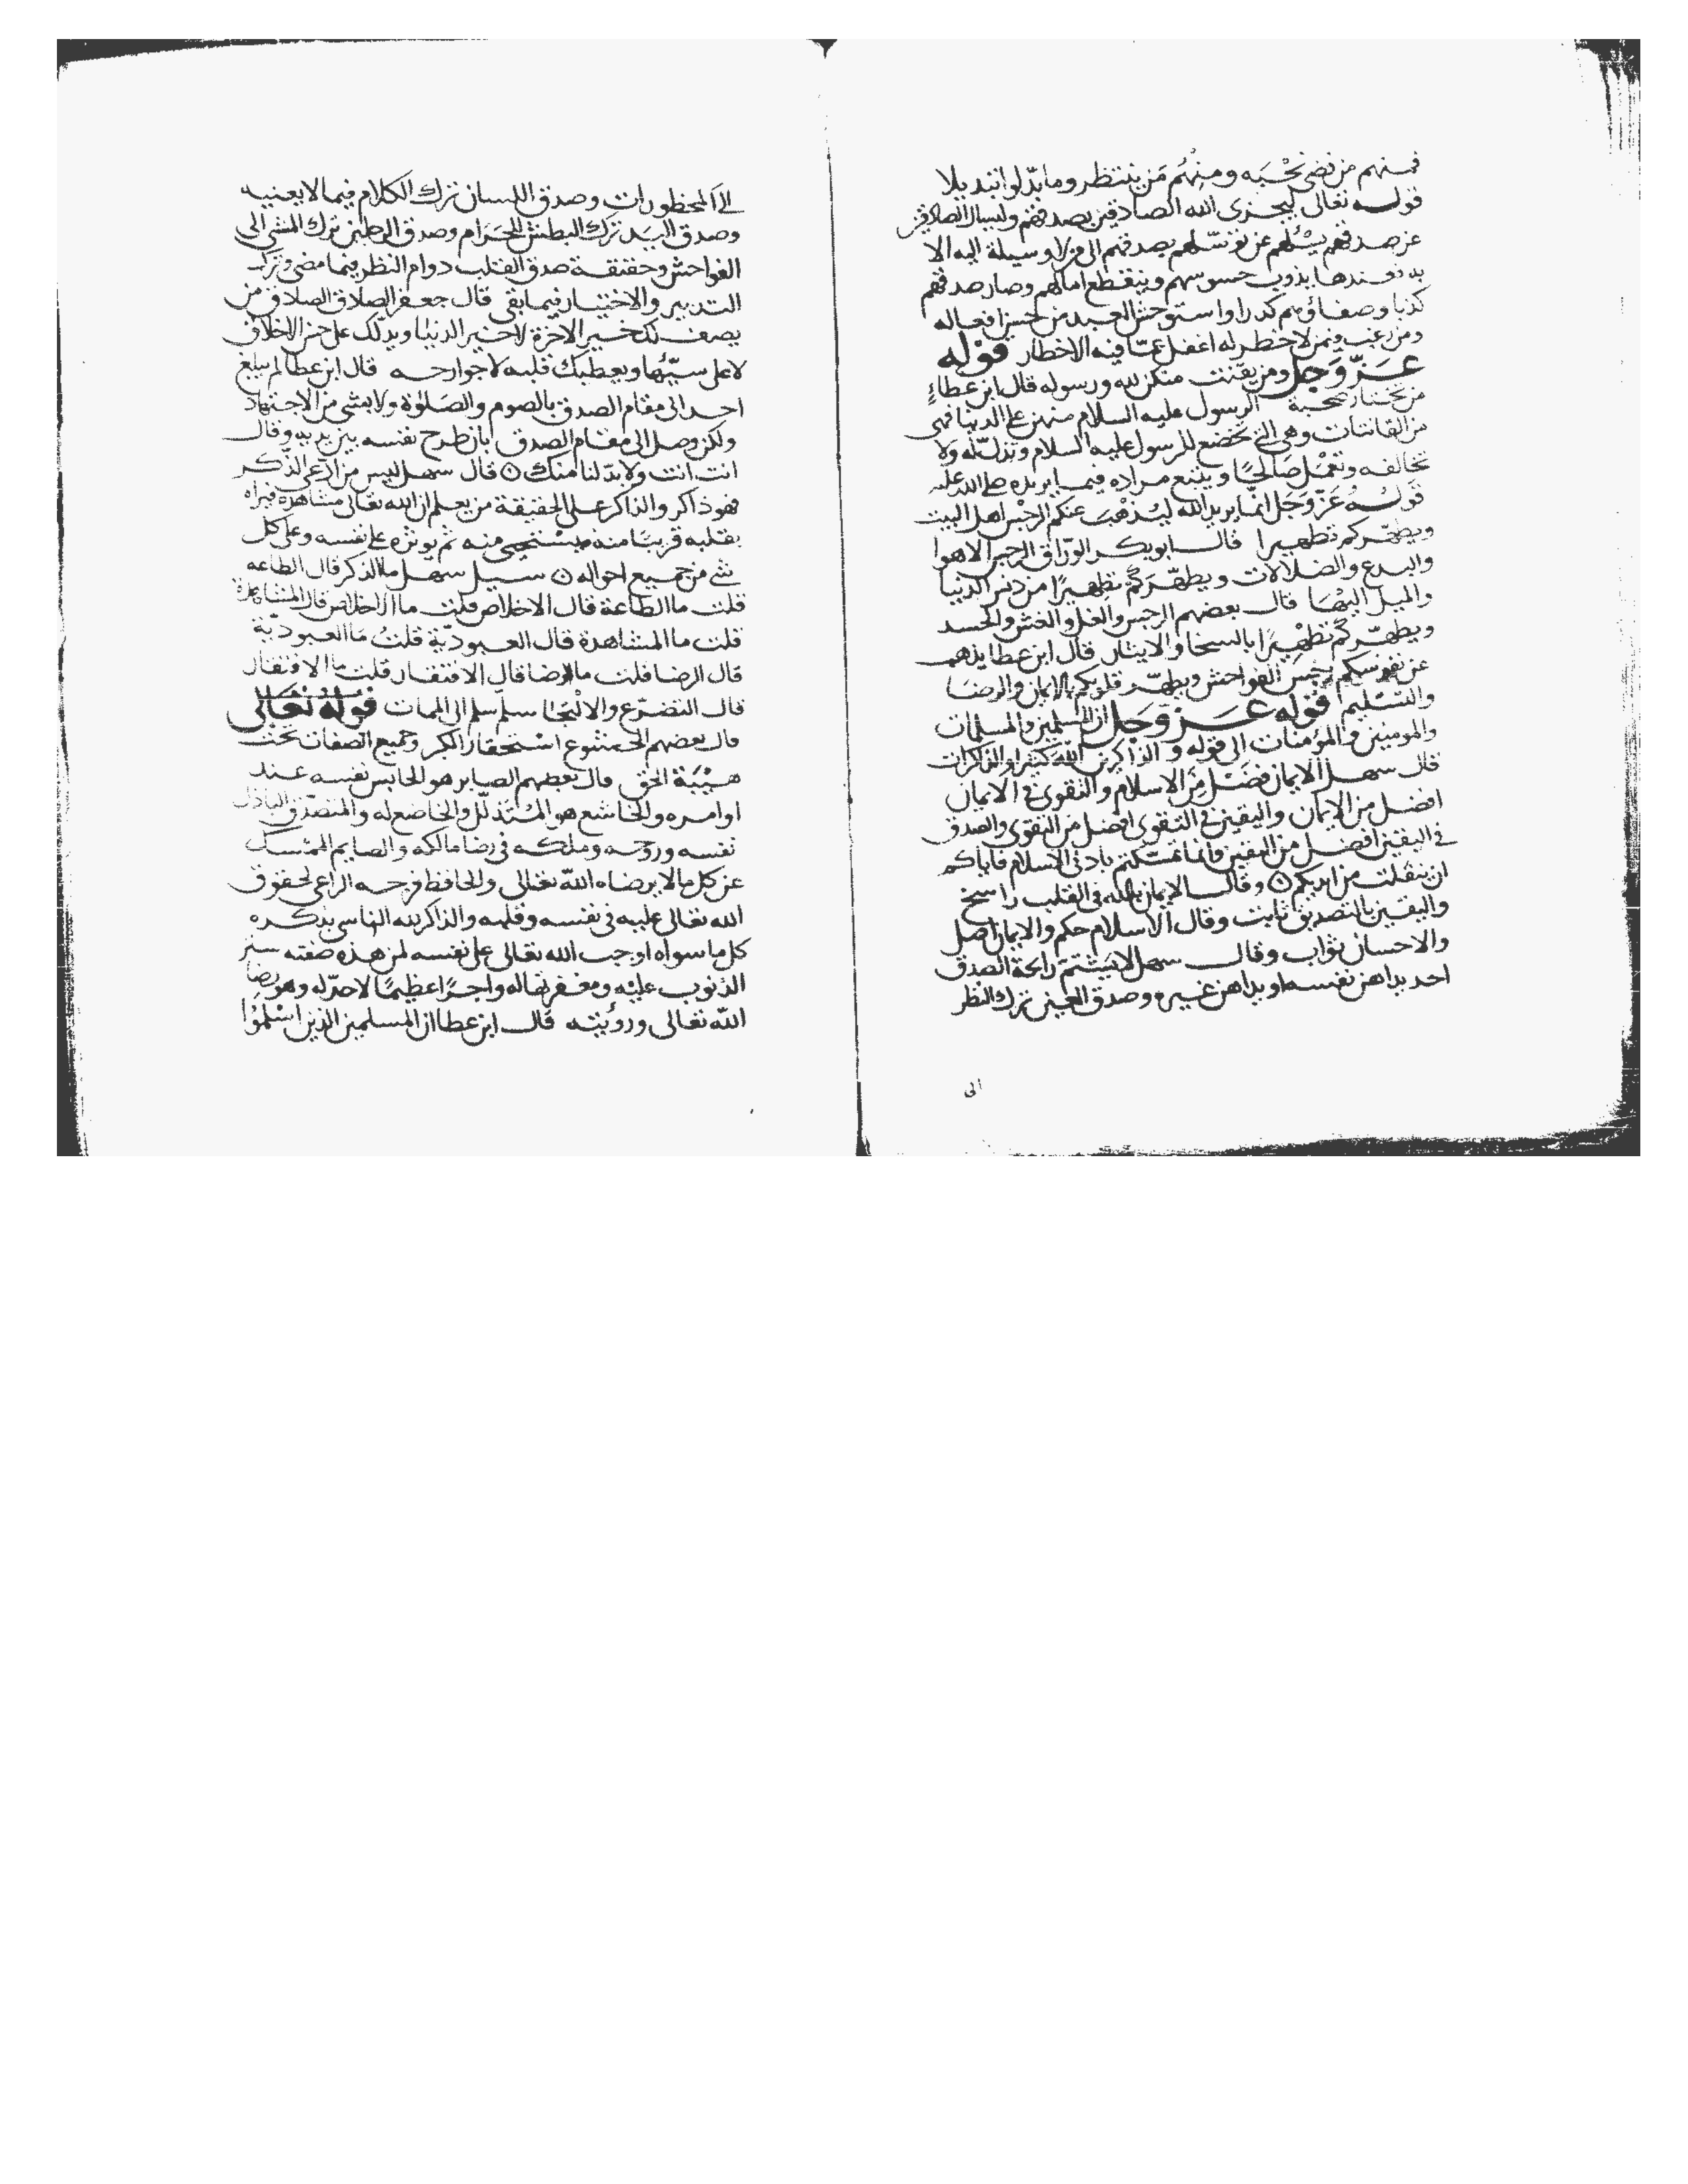 فمنهم من قضى نحْبَه ومنهُم مَن ينتظر وما بدّلوا تبديلا
قوله تعالى ليجزى الله الصادقين بصدقهم وليسأل الصادقين
عن صدقهم يسْئلهم عن توسّلهم بصدقهم الى من لا وسيلة اليه الا
به فعندها يذوب حسوسهم وينقطع امالهم وصار صدقهم
كذبا وصفاؤهم كدرا واستوحش العبد من حسن افعاله
ومن رغب ونمن لاخطر له اغفل عمّا فيه الاخطار قوله
عزّ وَجلّ ومن يقنت منكن لله ورسوله قال ابن عطاءٍ
من يختار صحبة الرسول عليه السلام منهن على الدنيا فهى
من القانتات وهى التى تخضع للرسول عليه السلام وتذلّ له ولا
تخالفه وتعْمَل صَالحًا ويتبع مراده فيما يريده صلى الله عليه
قولـهُ عَزّ وَجَل انمّا يريد الله ليُذْهبَ عنكم الرجْس اهل البيت
ويطهّركم تطهيرا قال ابو بكر الورّاق الرجس الاهوا
والبدع والضلالات ويطهّرَكُم تطهيرًا من دنس الدنيا
والميل اليْهَا قال بعضهم الرجس والغل والغش والحسد
ويطهّركُم تطهْيرًا بالسخا والايثار قال ابن عطا يذهب
عن نفوسكم رجسَ الفواحش ويطهّر قلوبكم بالايمان والرضَا
والتسْليم قوله عَزّ وَجَلّ ان المسلمين والمسلمات
والمومنين والمؤمنات الى قوله والذاكرين اللّهَ كثيرا والذاكرات
قال سهل الايمان فضَل مِنَ الاسلام والتقوى فى الايمان
افضل من الايمان واليقين فى التقوى افضل من التقوى والصدق
فى اليقين افضل من اليقين وانما تمسّكتم بادنى الاسلام فاياكم
ان ينفلت من ايديكم وقال الايمان بالله فى القلب راسخ
واليقين بالتصديق ثابت وقال الاسلام حكم والايمان اصل
والاحسان ثواب وقال سهل لا يشتمّ رائحة الصدق
احد يداهن نفسه او يداهن غيره وصدق العين ترك النظر
الى
الى المحظورات وصدق اللسان ترك الكلام فيما لا يعنيه
وصدق اليَد ترك البطش للحَرام وصدق الرجلين ترك المشى الى
الفواحش وحقيقة صدق القلب دوام النظر فيما مضى وترك
التدبير والاختيار فيما بقى قال جعفر الصادق الصادق من
يصف لك خير الاخرة لا خير الدنيا ويدلّك على حسن الاخلاق
لا على سيّئها ويعطيك قلبه لا جوارحه قال ابن عطا لم يبلغ
احد الى مقام الصدق بالصوم والصَلوٰة ولا بشى من الاجتهاد
ولكن وصل الى مقام الصدق بان طرح نفسه بين يديه وقال
انت انت ولا بدّ لنا منك قال سهل ليس من ادّعى الذّكر
فهو ذاكر والذاكر على الحقيقة من يعلم ان الله تعالى مشاهده فيراه
بقلبه قريبًا منه فيسْتحيى منه ثم يوثره على نفسه وعلى كل
شى من جميع احواله سيل سهل ما الذكر قال الطاعه
قلت ما الطاعة قال الاخلاص قلت ما الاخلاص قال المشاهدة
قلت ما المشاهدة قال العبوديّة قلتُ مَا العبوديّة
قال الرضا قلت ما الرضا قال الافتقار قلت ما الافتقار
قال التضرّع والالْتجَا سلّم سلّم الى الممات قولهُ تعَالى
قال بعضهم الخشوع اسْتحقار الكبر وجميع الصفات تحت
هيْبَة الحق قال بعضهم الصابر هو الحابس نفسه عند
اوامره والخاشع هو المُتذلّل والخاضع له والمتصدّق الباذل
نفسه وروحه وملكه فى رضا مالكه والصايم الممسك
عن كل ما لا يرضاه اللّه تعالى والحافظ فرجه الراعى لحقوق
الله تعالى عليه فى نفسه وقلبه والذاكر لله الناسى بذكره
كل ما سواه اوجب الله تعالى على نفسه لمن هذه صفته ستر
الذنوب عليْه ومغفرتها له واجرًا عظيمًا لا حدّ له وهو رضَا
اللّه تعالى ورؤيته قال ابن عطا ان المسلمين الذين اسْلمُوا